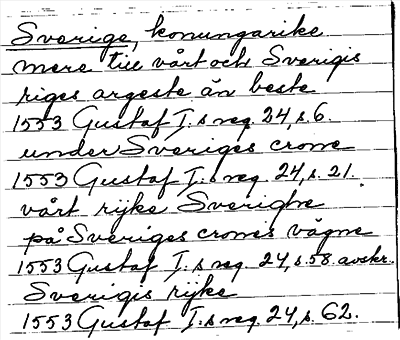 Sverige, konungarike
mere till vårt och Sverigis
riges argeste än beste
1553 Gustaf I.s reg. 24, s. 6.
under Sveriges crone
1553 Gustaf I.s reg. 24, s. 21.
vårt rijke Sverighe
på Sveriges crones vägne
1553 Gustaf I.s reg. 24, s. 58. avskr.
Sverigis rijke
1553 Gustaf I.s reg. 24, s. 62.